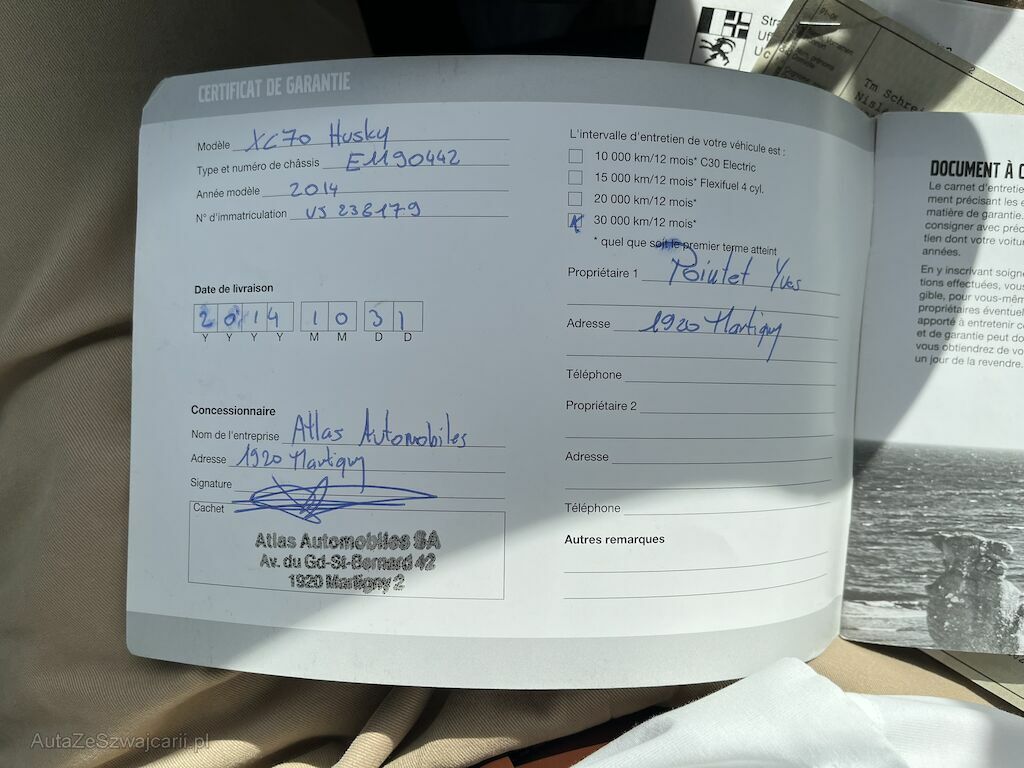 CERTIFICAT DE GARANTIE
Modèle XC70 Husky
Type et numéro de châssis E1190442
Année modèle 2014
N° d'immatriculation VS 238179
Date de livraison
2014 10 31
Y Y Y Y M M D D
Concessionnaire
Nom de l'entreprise Atlas Automobiles
Adresse 1920 Martigny
Signature
Cachet
Atlas Automobiles SA
Av. du Gd-St-Bernard 42
1920 Martigny 2
L'intervalle d'entretien de votre véhicule est :
10 000 km/12 mois* C30 Electric
15 000 km/12 mois* Flexifuel 4 cyl.
20 000 km/12 mois*
30 000 km/12 mois*
* quel que soit le premier terme atteint
Propriétaire 1 Pointet Yves
Adresse 1920 Martigny
Téléphone
Propriétaire 2
Adresse
Téléphone
Autres remarques
DOCUMENT À C
Le carnet d'entretie
ment précisant les
matière de garantie.
consigner avec préc
tien dont votre voitu
années.
En y inscrivant soigne
tions effectuées, vous
gible, pour vous-mêm
propriétaires éventuel
apporté à entretenir c
et de garantie peut do
vous obtiendrez de vo
un jour de la revendre.
Stra
Tm Schrei
AutaZeSzwajcarii.pl